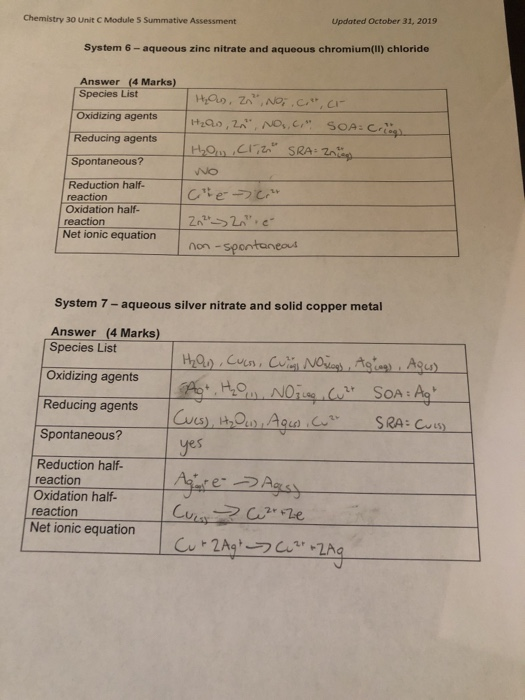 Chemistry 30 Unit C Module 5 Summative Assessment Updated October 31, 2019
System 6 – aqueous zinc nitrate and aqueous chromium(II) chloride
Answer (4 Marks)
Species List H₂O(l), Zn²⁺, NO₃⁻, Cr²⁺, Cl⁻
Oxidizing agents H₂O(l), Zn²⁺, NO₃, Cr²⁺ SOA: Cr²⁺(aq)
Reducing agents H₂O(l), Cl⁻, Zn²⁺ SRA: Zn²⁺(aq)
Spontaneous? NO
Reduction half-
reaction
Oxidation half-
reaction
Net ionic equation non-spontaneous
System 7 – aqueous silver nitrate and solid copper metal
Answer (4 Marks)
Species List H₂O(l), Cu(s), NO₃⁻(aq), Ag⁺(aq), Ag(s)
Oxidizing agents Ag⁺, H₂O(l), NO₃⁻(aq), Cu²⁺ SOA: Ag⁺
Reducing agents Cu(s), H₂O(l), Ag(s), Cu²⁺ SRA: Cu(s)
Spontaneous? yes
Reduction half-
reaction Ag⁺(aq) + e⁻ → Ag(s)
Oxidation half-
reaction Cu(s) → Cu²⁺ + 2e
Net ionic equation Cu + 2Ag⁺ → Cu²⁺ + 2Ag